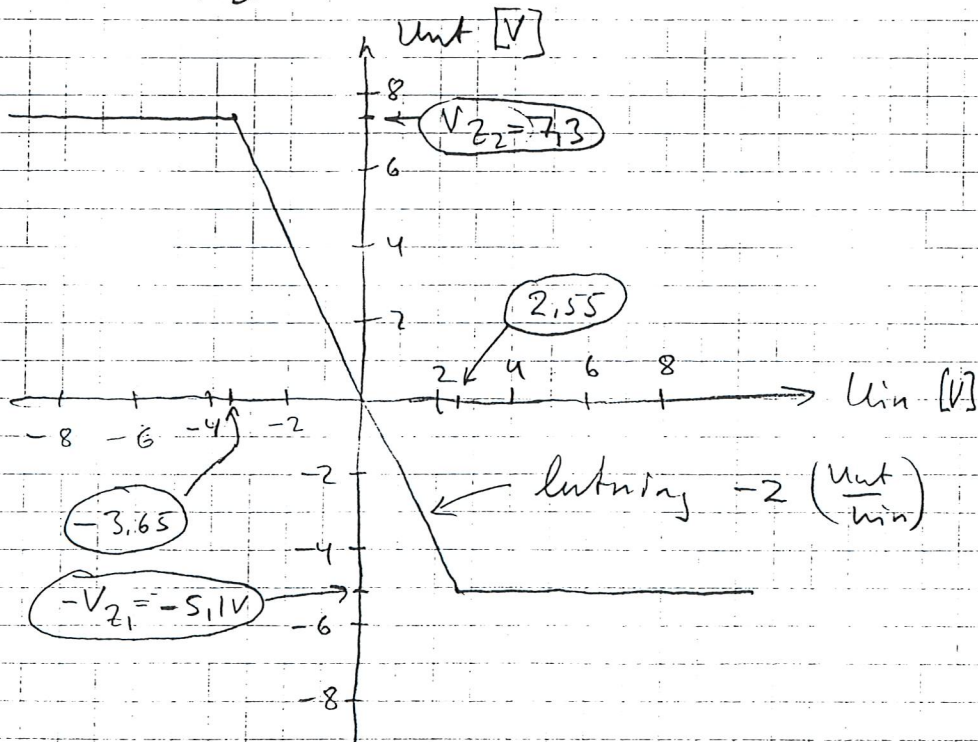 Unt [V]
8
V_Z2 = 7,3
6
4
2,55
2
2 4 6 8
Uin [V]
-8 -6 -4 -2
-2
lutning -2 (Uut/Uin)
-3,65
-4
-V_Z1 = -5,1V
-6
-8